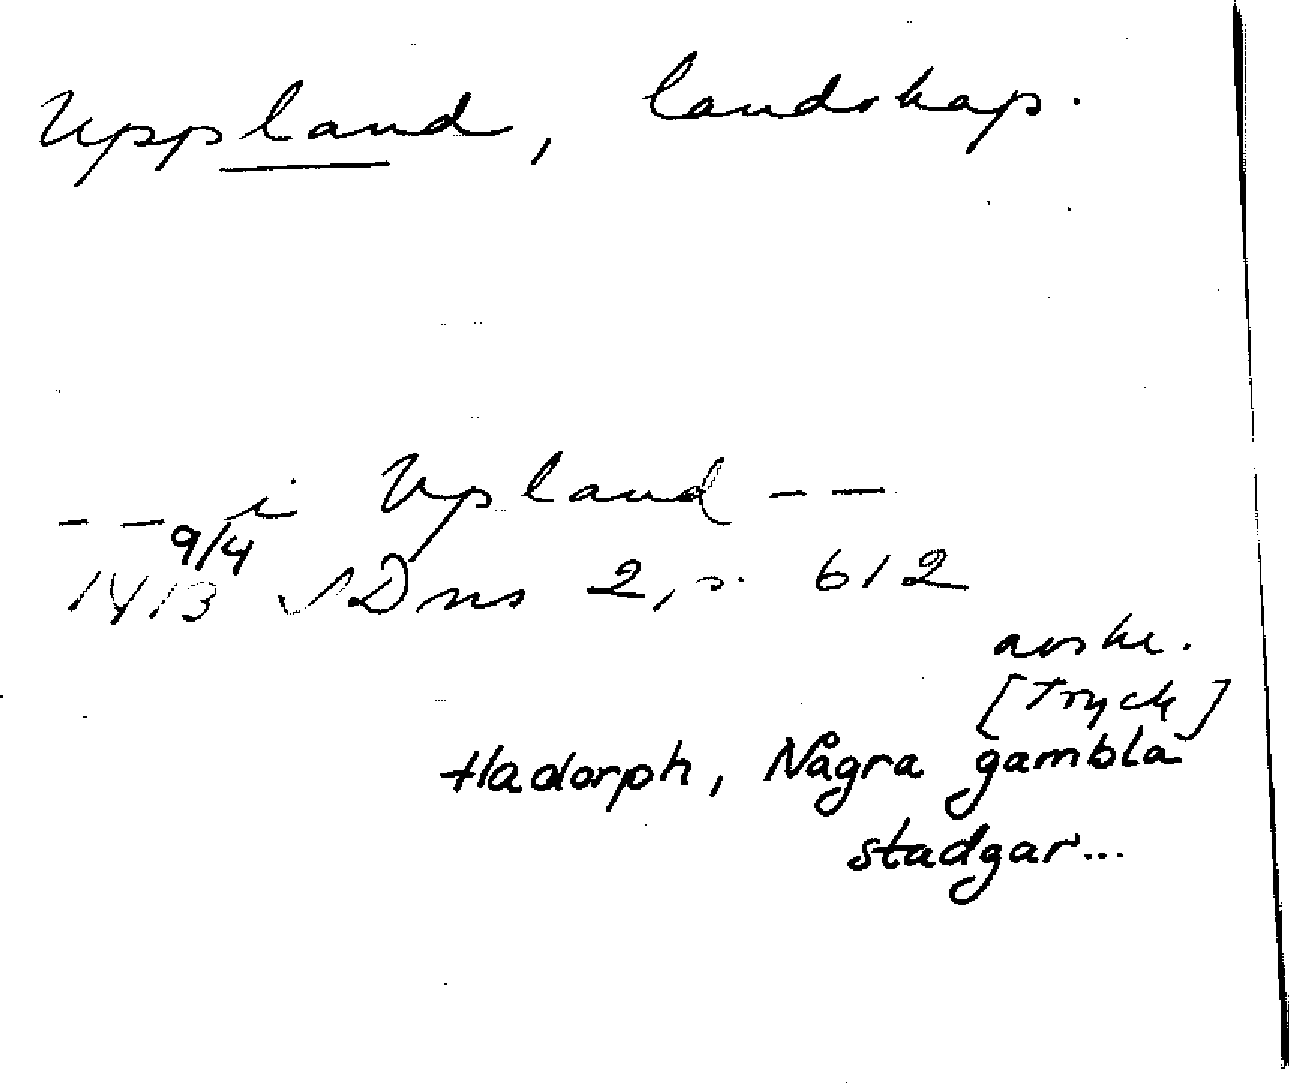 Uppland, landskap.
-- i Upland --
9/4
1413 SDns 2, s. 612
avskr.
[Tryck]
Hadorph, Några gambla
stadgar...